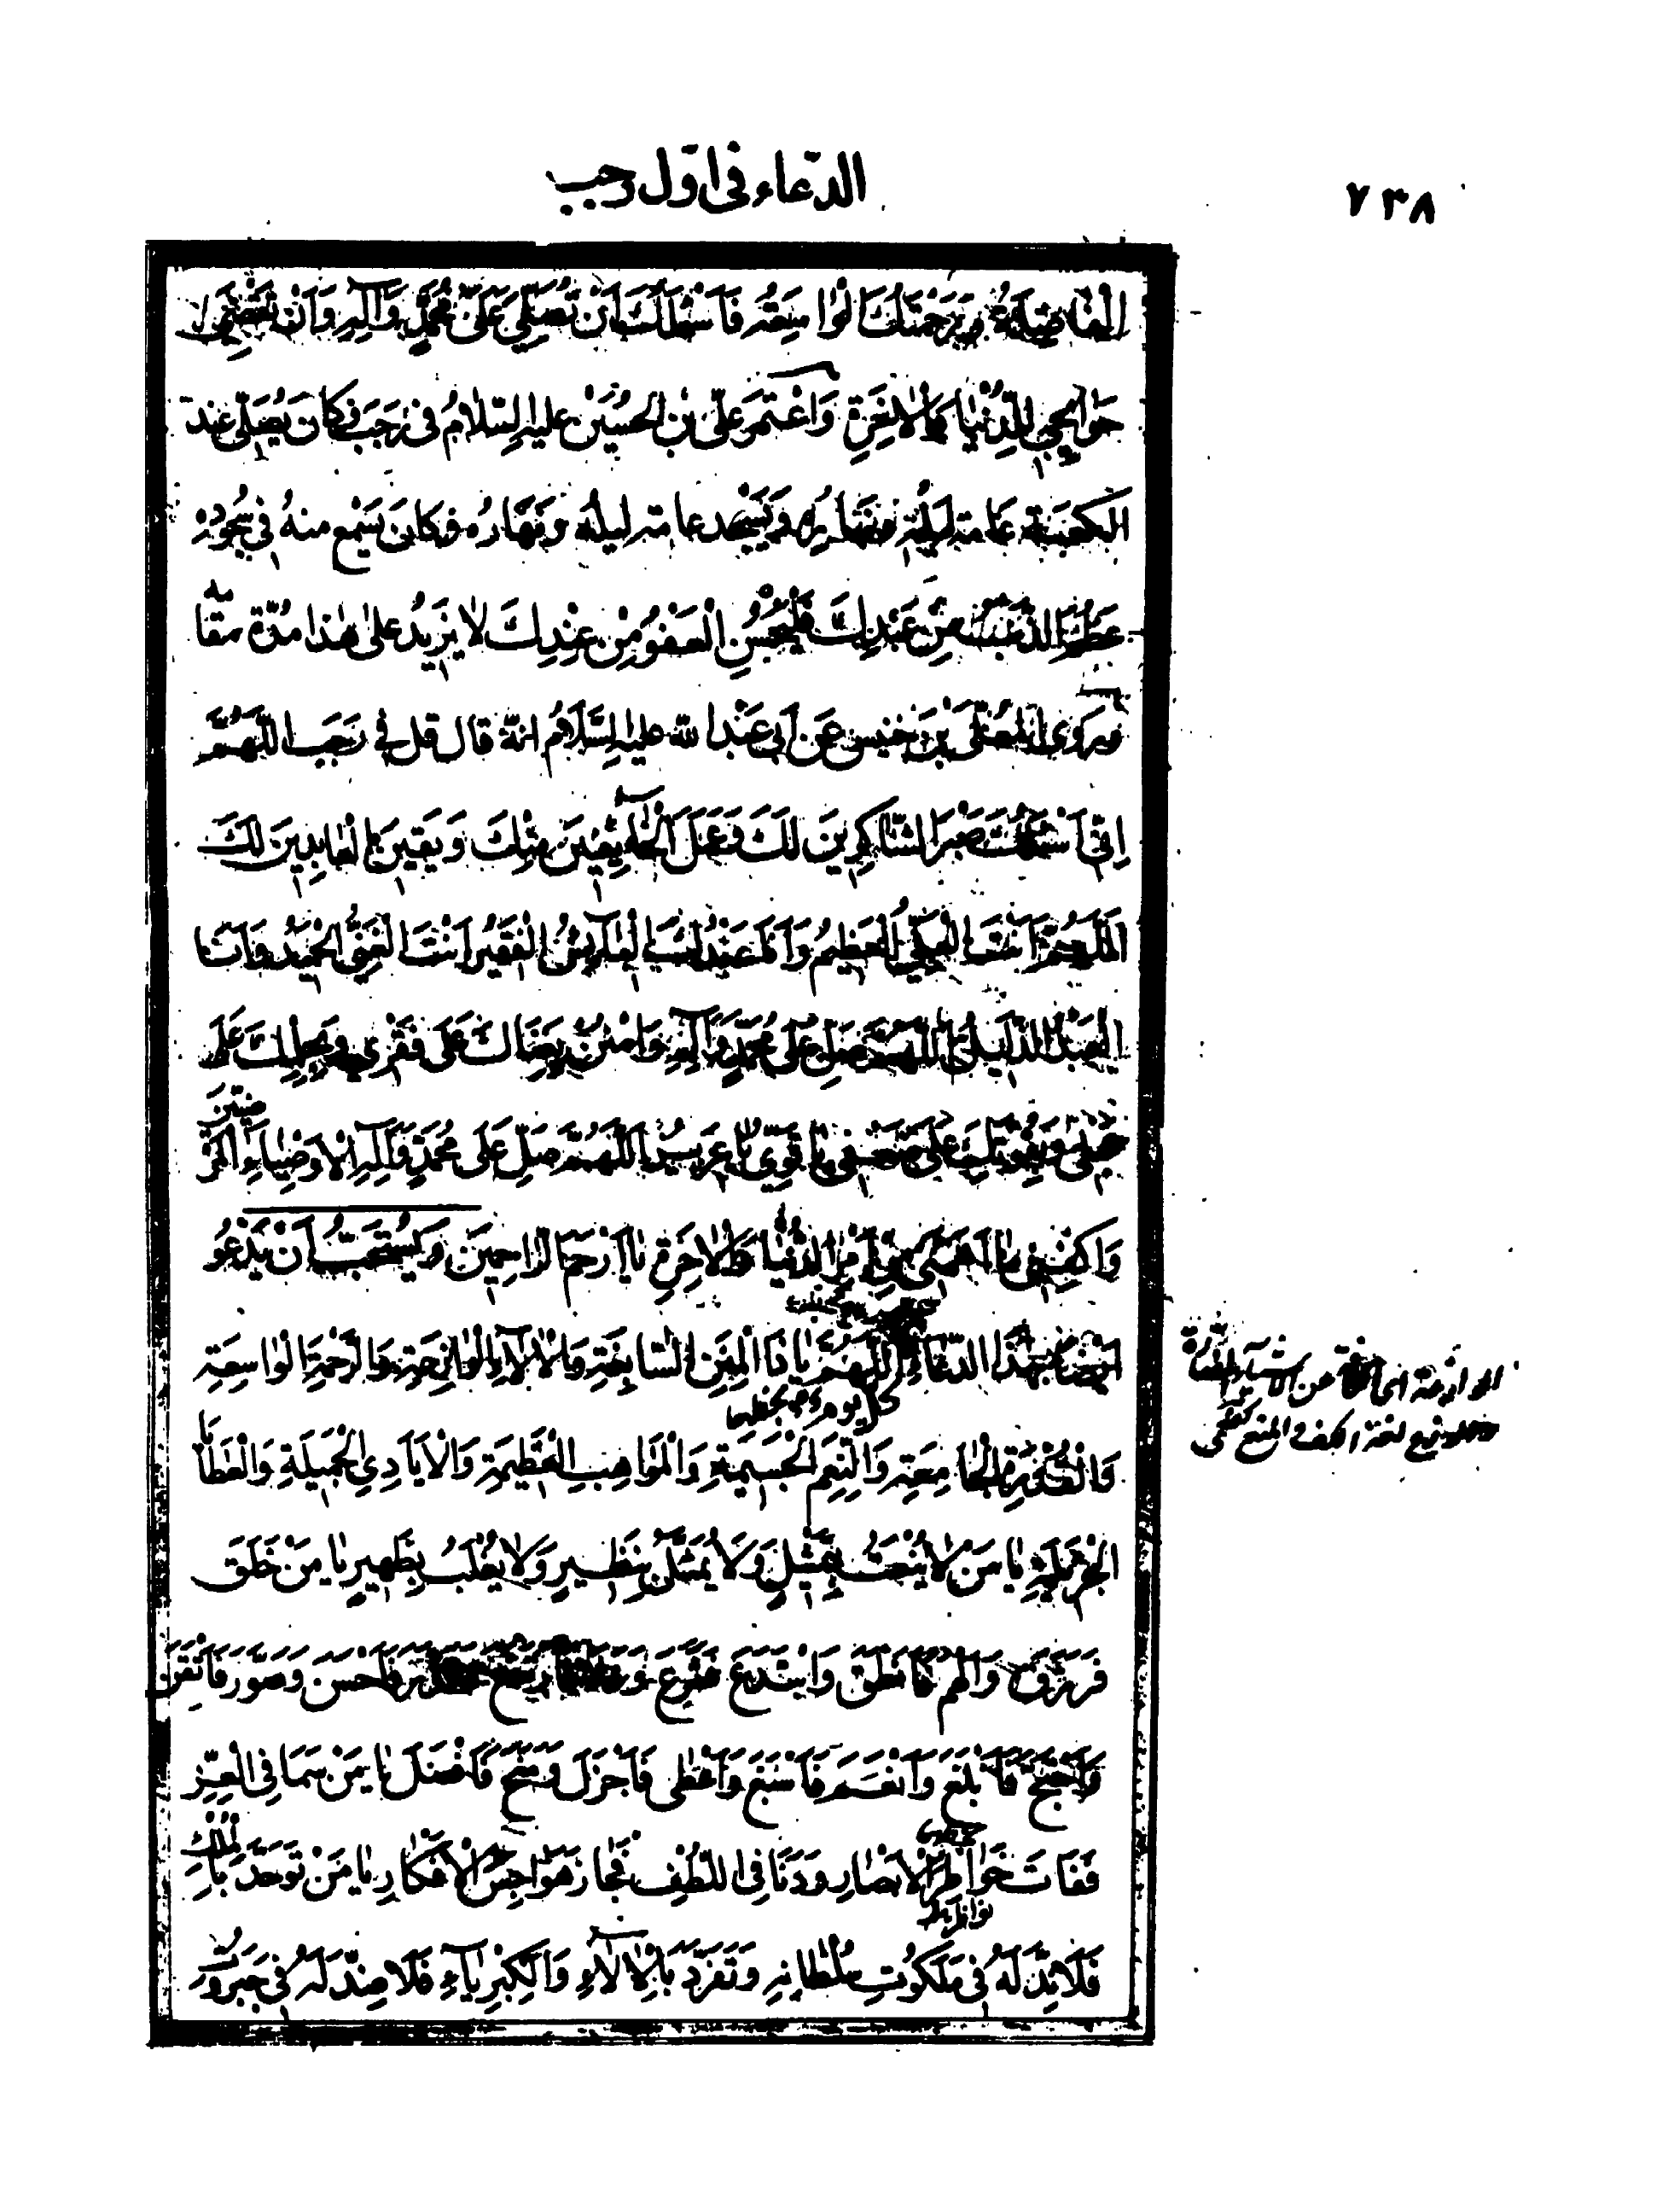 ٧٣٨
الدّعاء في اوّل رجب
الْفَاضِلَةُ وَرَحْمَتُكَ الْوَاسِعَةُ فَأَسْأَلُكَ أَنْ تُصَلِّيَ عَلَىٰ مُحَمَّدٍ وَآلِهِ وَأَنْ تَقْضِيَ
حَوَائِجِي لِلدُّنْيَا وَالْآخِرَةِ وَاعْتَمَرَ عَلِيُّ بْنُ الْحُسَيْنِ عليه السّلامُ في رَجَبَ فكانَ يُصَلّي عند
الكعْبَة عَامة لَيْلَتِهِ وَنَهَارِهِ وَيَسْجُد عامة ليله وَنَهَارِه وَكانَ يُسْمَع منهُ في سُجُودِهِ
عَظُمَ الذَّنْبُ مِنْ عَبْدِكَ فَلْيَحْسُنِ الْعَفْوُ مِنْ عِنْدِكَ لا يَزِيدُ على هٰذا مُدّة مقامه
وَرَوَى الْمُعَلَّى بْنُ خنيس عَنْ أَبِي عَبْدِ اللّه عليه السَّلَامُ انّهُ قال قل في رَجَب اللّٰهُمَّ
اِنّي أَسْأَلُكَ صَبْرَ الشَّاكِرِينَ لَكَ وَعَمَلَ الْخَائِفِينَ مِنْكَ وَيَقِينَ الْعَابِدِينَ لَكَ
اَللّٰهُمَّ أَنْتَ الْعَلِيُّ الْعَظِيمُ وَأَنَا عَبْدُكَ الْبَائِسُ الْفَقِيرُ أَنْتَ الْغَنِيُّ الْحَمِيدُ وَأَنَا
الْعَبْدُ الذَّلِيلُ اَللّٰهُمَّ صَلِّ عَلَىٰ مُحَمَّدٍ وَآلِهِ وَامْنُنْ بِغِنَاكَ عَلَىٰ فَقْرِي وَبِحِلْمِكَ عَلَىٰ
جَهْلِي وَبِقُوَّتِكَ عَلَىٰ ضَعْفِي يَا قَوِيُّ يَا عَزِيزُ اَللّٰهُمَّ صَلِّ عَلَىٰ مُحَمَّدٍ وَآلِهِ الْأَوْصِيَاءِ الْمَرْضِيِّينَ
وَاكْفِنِي مَا أَهَمَّنِي مِنْ أَمْرِ الدُّنْيَا وَالْآخِرَةِ يَا أَرْحَمَ الرَّاحِمِينَ وَيُسْتَحَبُّ أَنْ يَدْعُو
أيضا بِهٰذَا الدّعَاءِ اَللّٰهُمَّ يَا ذَا الْمِنَنِ السَّابِغَةِ وَالْآلَاءِ الْوَازِعَةِ وَالرَّحْمَةِ الْوَاسِعَةِ
كلّ يوم
وَالْقُدْرَةِ الْجَامِعَةِ وَالنِّعَمِ الْجَسِيمَةِ وَالْمَوَاهِبِ الْعَظِيمَةِ وَالْأَيَادِي الْجَمِيلَةِ وَالْعَطَايَا
الْجَزِيلَةِ يَا مَنْ لَا يُنْعَتُ بِتَمْثِيلٍ وَلَا يُمَثَّلُ بِنَظِيرٍ وَلَا يُغْلَبُ بِظَهِيرٍ يَا مَنْ خَلَقَ
فَرَزَقَ وَأَلْهَمَ فَأَنْطَقَ وَابْتَدَعَ فَشَرَعَ وَعَلَا فَارْتَفَعَ وَقَدَّرَ فَأَحْسَنَ وَصَوَّرَ فَأَتْقَنَ
وَاحْتَجَّ فَأَبْلَغَ وَأَنْعَمَ فَأَسْبَغَ وَأَعْطَىٰ فَأَجْزَلَ وَمَنَحَ فَأَفْضَلَ يَا مَنْ سَمَا فِي الْعِزِّ
فَفَاتَ خَوَاطِرَ الْأَبْصَارِ وَدَنَا فِي اللُّطْفِ فَجَازَ هَوَاجِسَ الْأَفْكَارِ يَا مَنْ تَوَحَّدَ بِالْمُلْكِ
فَلَا نِدَّ لَهُ فِي مَلَكُوتِ سُلْطَانِهِ وَتَفَرَّدَ بِالْآلَاءِ وَالْكِبْرِيَاءِ فَلَا ضِدَّ لَهُ فِي جَبَرُوتِ